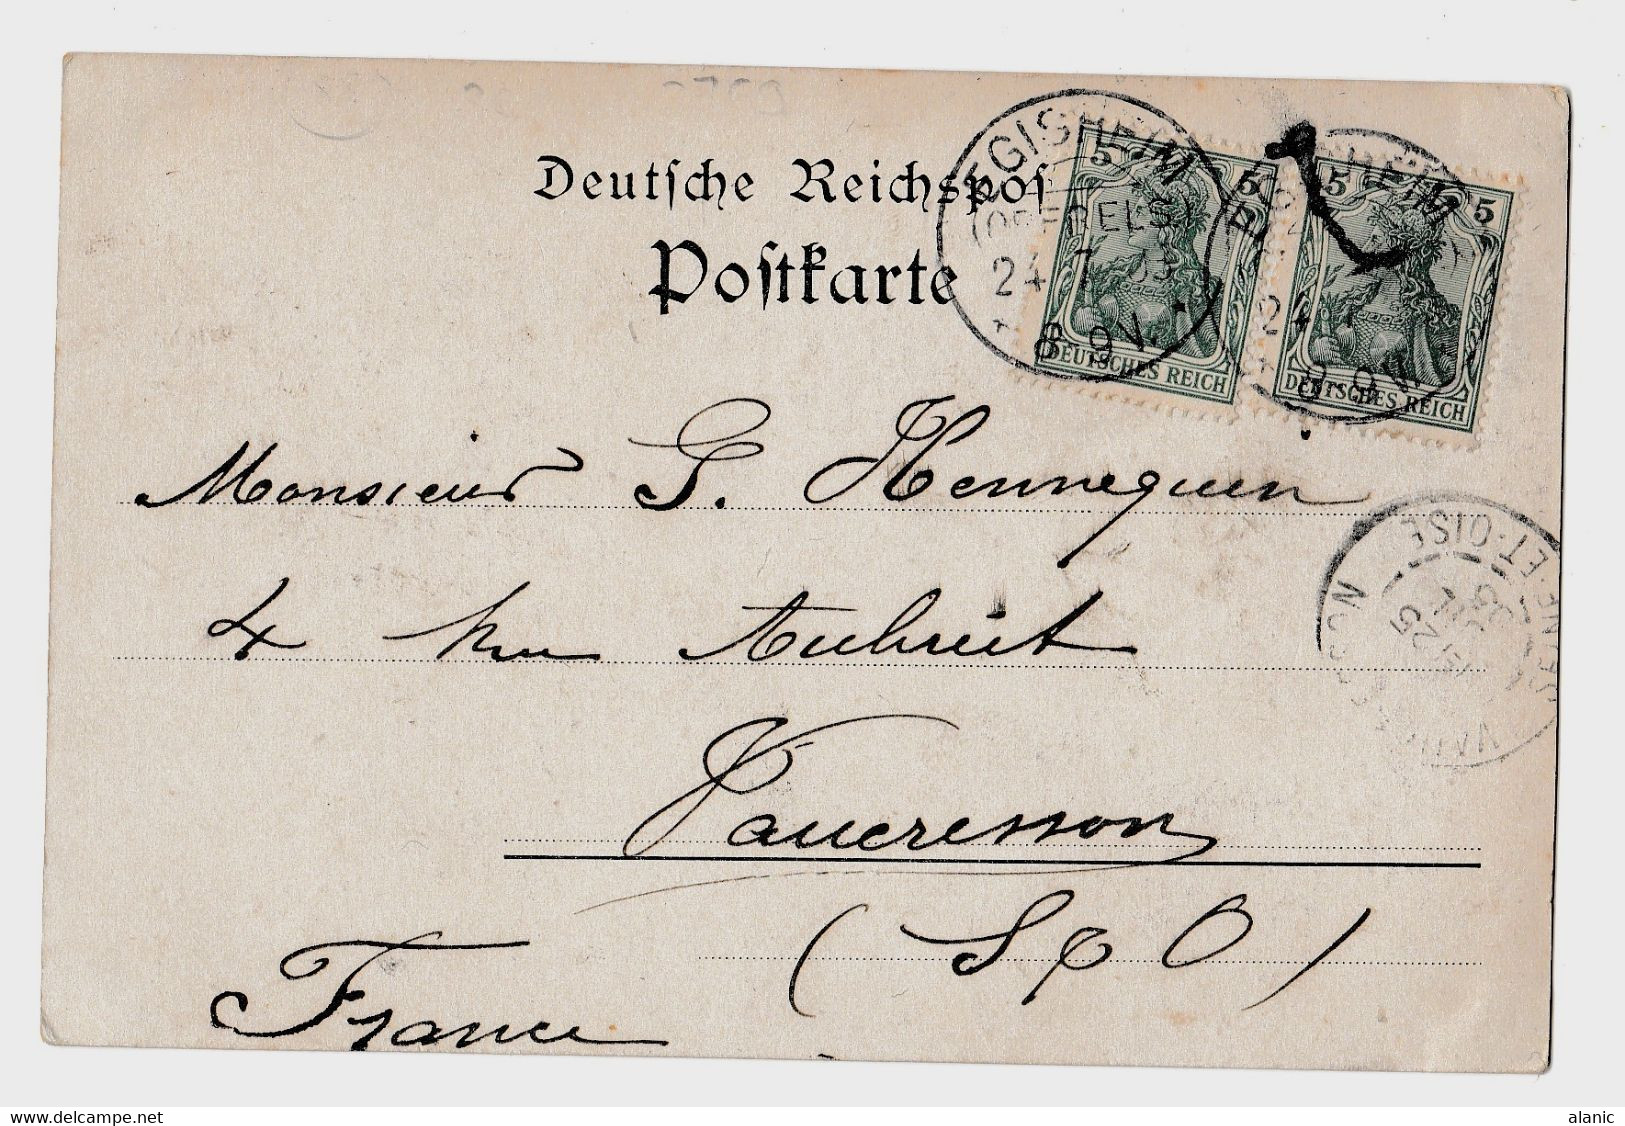 Deutsche Reichspost
Postkarte
EGISHEIM
(OBERELS.)
24 7 03
8-9V.
5 5
DEUTSCHES REICH
5 5
DEUTSCHES REICH
Monsieur G. Hennequin
4 Rue Aubriet
Vaucresson
(S & O)
France
ET-OISE
25
www.delcampe.net
alanic